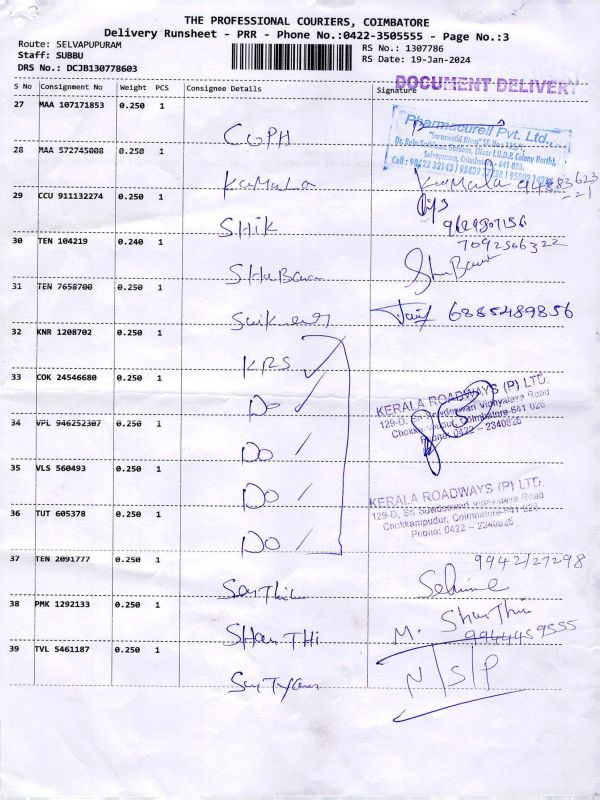 THE PROFESSIONAL COURIERS, COIMBATORE
Delivery Runsheet - PRR - Phone No.:0422-3505555 - Page No.:3
Route: SELVAPUPURAM
RS No.: 1307786
Staff: SUBBU
RS Date: 19-Jan-2024
DRS No.: DCJB130778603
DOCUMENT DELIVERY
S No Consignment No Weight PCS Consignee Details Signature
27 MAA 107171853 0.250 1 CGPH
Pharmacureil Pvt. Ltd.,
28 MAA 572745008 0.250 1 Kamala Kamala
29 CCU 911132274 0.250 1 SHIK
30 TEN 104219 0.240 1 SHuBana
7092506322
31 TEN 7658700 0.250 1
6885489856
32 KNR 1208702 0.250 1 KRS
33 COK 24546680 0.250 1 Do
KERALA ROADWAYS (P) LTD.
34 VPL 946252307 0.250 1 Do
Phone: 0422 - 2340826
35 VLS 560493 0.250 1 Do
KERALA ROADWAYS (P) LTD.
129-D, Sri Suwdeeswari Vidhyalaya Road
Chokkampudur, Coimbatore-641 026
Phone: 0422 - 2340826
36 TUT 605378 0.250 1 Do
37 TEN 2091777 0.250 1
9942127298
38 PMK 1292133 0.250 1 SHanTHi M. ShanThi
9944459555
39 TVL 5461187 0.250 1 N/S/P